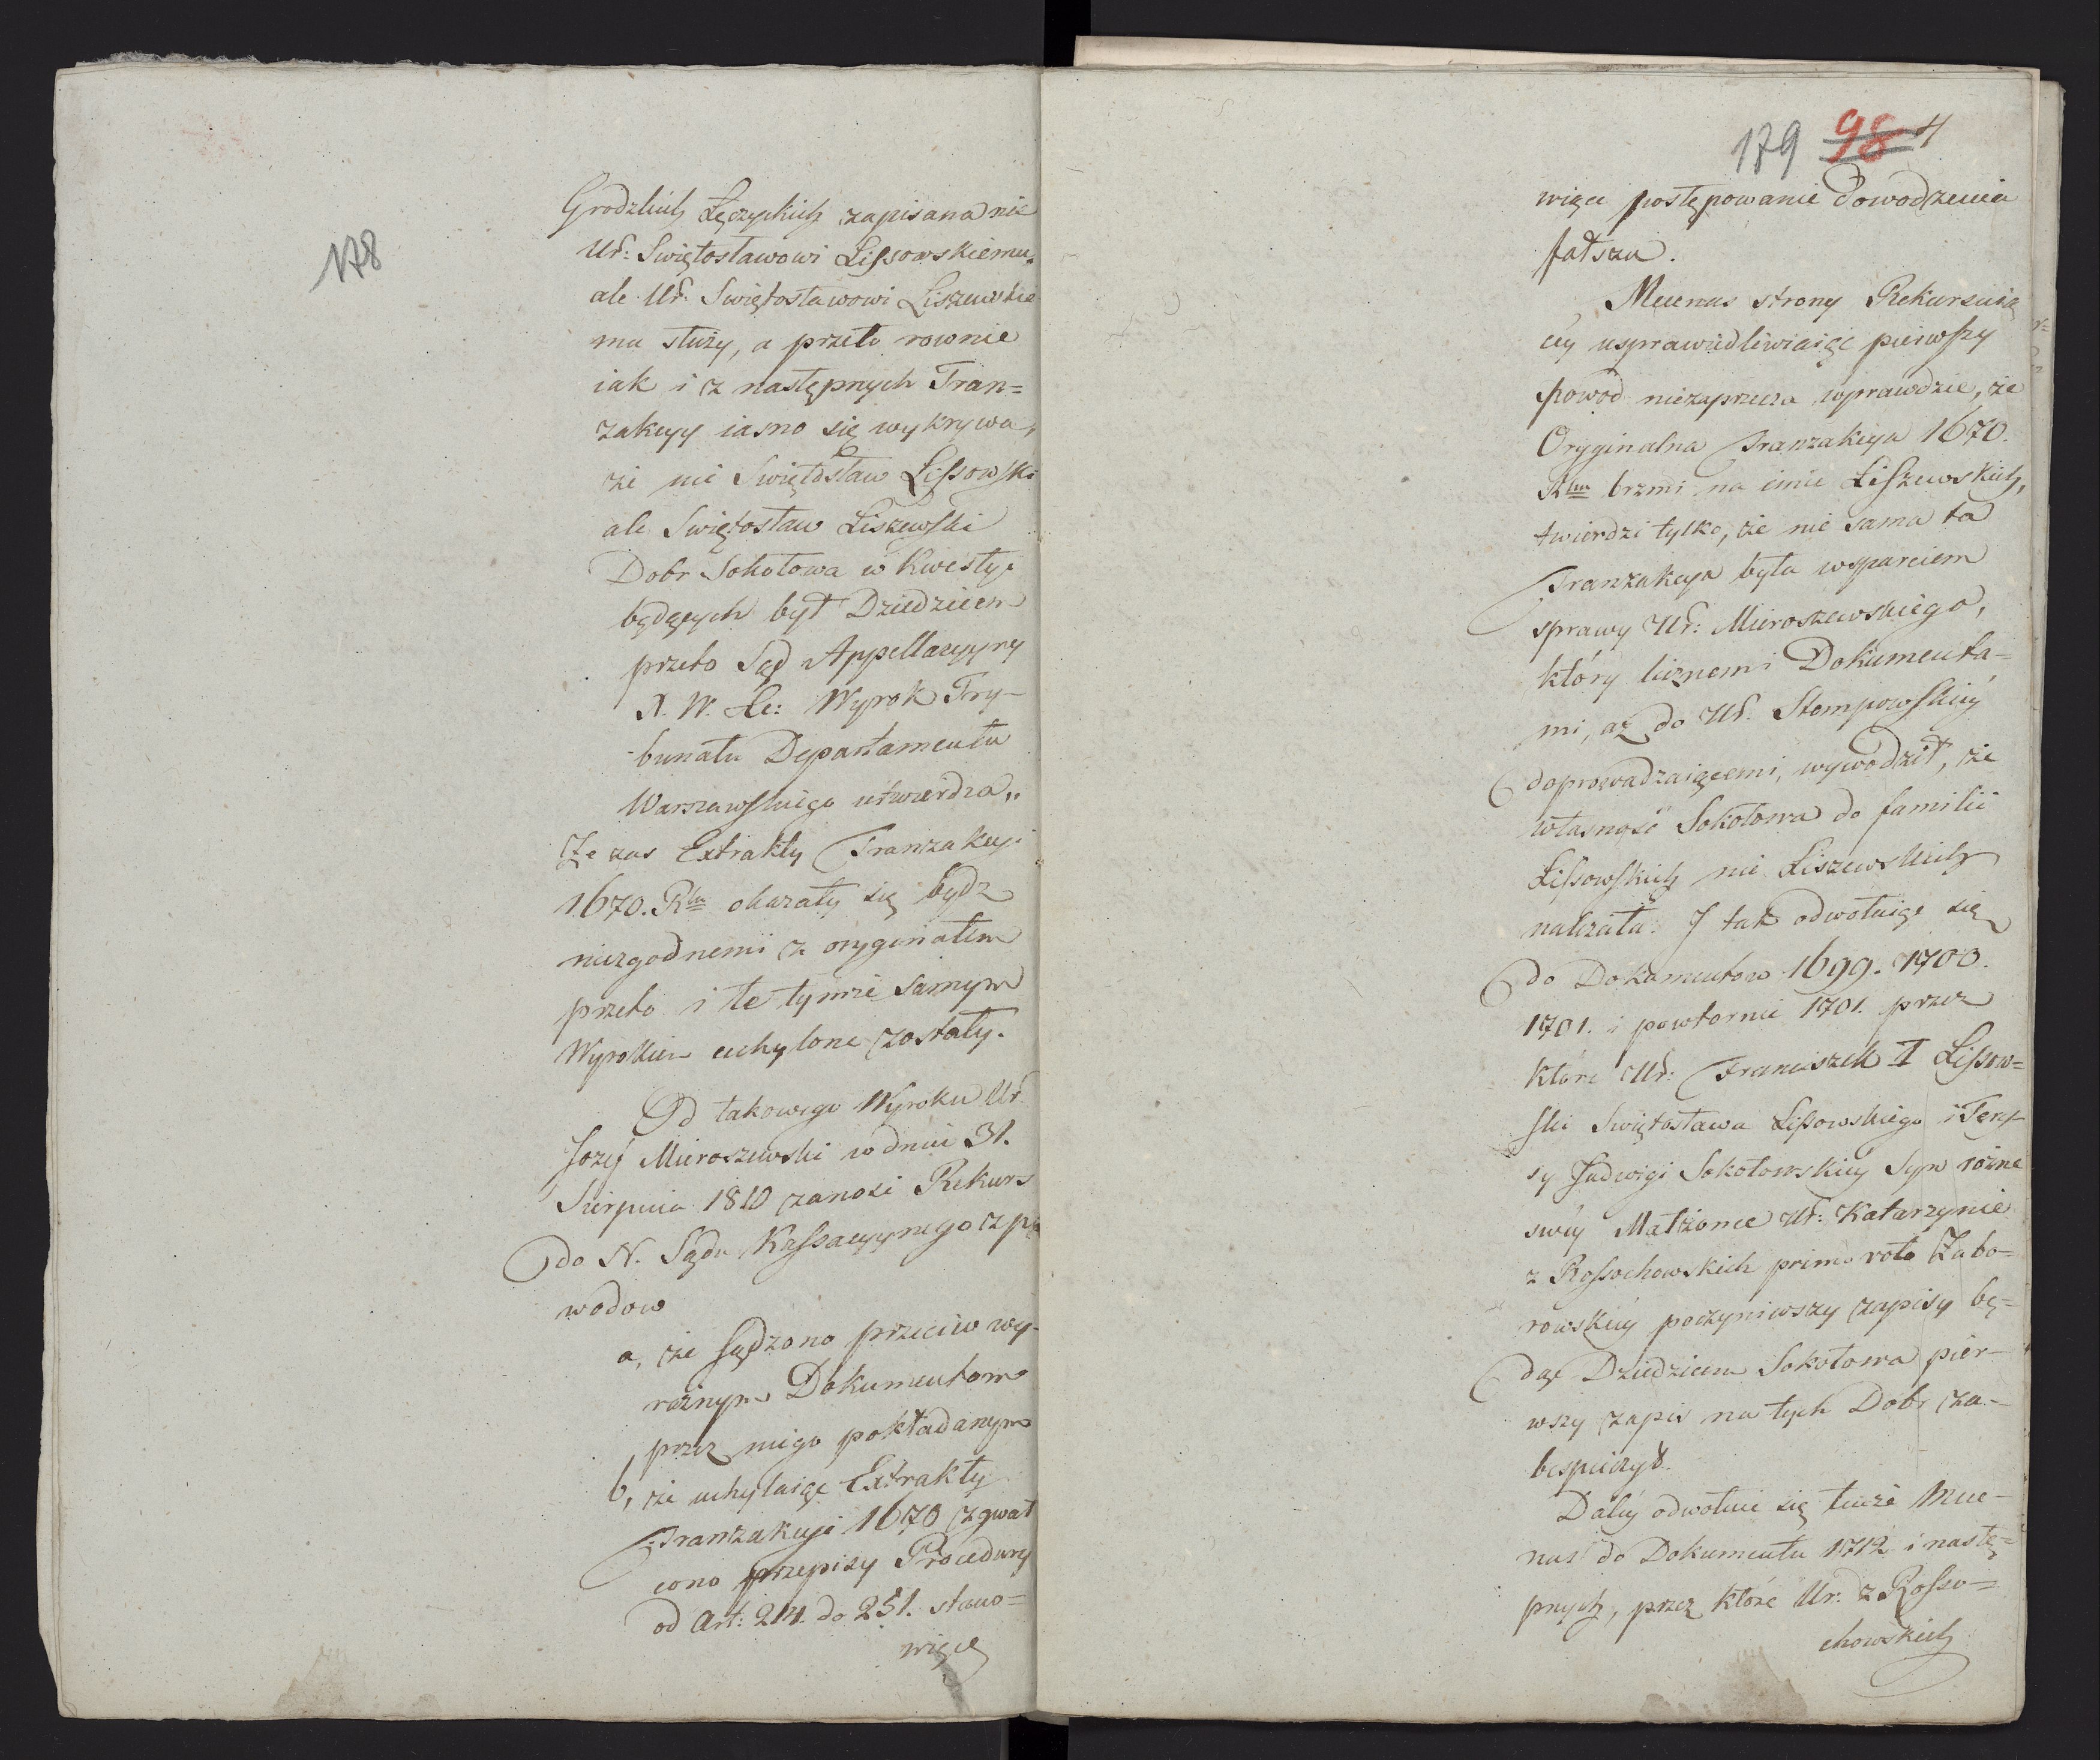 178
Grodzkich Łęczyckich zapisana nie
Ur: Swiętosławowi Lissowskiemu,
ale Ur: Swiętosławowi Liszewskie
mu służy, a przeto rownie
iak i z następnych Tran=
zakcyy iasno się wykrywa,
że nie Swiętosław Lissowski
ale Swiętosław Liszewski
Dobr Sokołowa w kwestyi
będących był Dziedzicem
przeto Sąd Appellacyyny
X. W. Wyrok Try-
bunału Departamentu
Warszawskiego utwierdza„
Ze zas Extrakty Tranzakcyi
1670. Rku okazały się bydz
niezgodnemi z oryginałem
przeto i te tymże samym
Wyrokiem uchylone zostały.
Od takowego Wyroku Ur.
Jozef Mieroszewski w dniu 31.
Sierpnia 1810 zanosi Rekurs
do N. Sądu Kassacyynego z po
wodow
a, że sądzono przeciw wy-
raźnym Dokumentom
przez niego pokładanym
b, że uchylaiąc Extrakty
Tranzakcyi 1670 zgwał
cono przepisy Procedury
od Art: 214. do 251. stano=
wiące
179 98 4
wiące postępowanie Dowodzenia
fałszu.
Mecenas strony Rekursuią
cey usprawiedliwiaiąc pierwszy
powod niezaprzecza wprawdzie, że
Oryginalna Tranzakcya 1670.
Rku brzmi na imie Liszewskich,
twierdzi tylko, że nie sama ta
Tranzakcya była wsparciem
sprawy Ur: Mieroszewskiego,
który licznemi Dokumenta=
mi, aż do Ur. Stempowskiey
doprowadzaiącemi, wywodził, że
własność Sokołowa do familii
Lissowskich nie Liszewskich
należała. I tak odwołuiąc się
do Dokumentow 1699. 1700.
1701. i powtornie 1701. przez
które Ur: Franciszek I Lissow=
ski Swiętosława Lissowskiego i Tere
sy Jadwigi Sokołowskiey Syn rożne
swey Małżonce Ur: Katarzynie
z Rossochowskich primo voto Zabo=
rowskiey poczyniwszy zapisy bę=
dąc Dziedzicem Sokołowa pier-
wszy zapis na tych Dobr za-
bespieczył.
Daley odwołuie się tenże Mece-
nas do Dokumentu 1712 i nastę=
pnych, przez które Ur. z Rosso=
chowskich